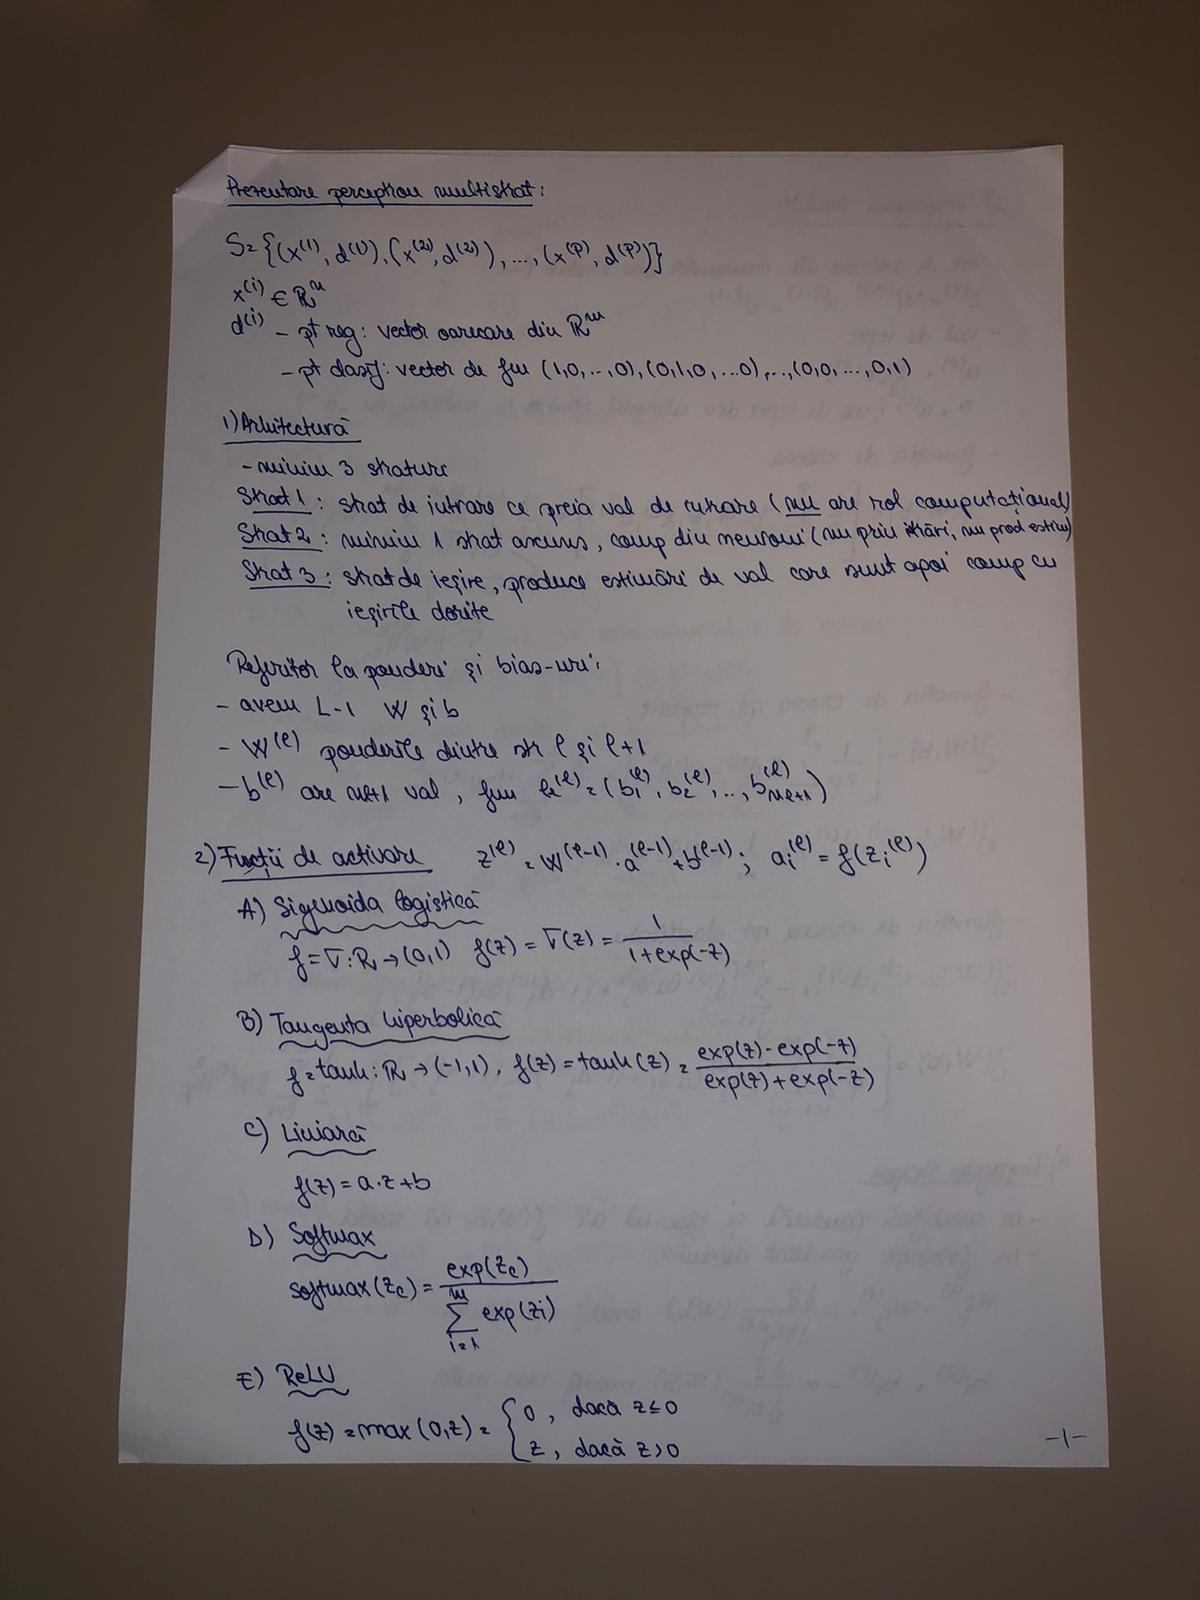 Prezentare perceptron multistrat:
S = {(x^(1), d^(1)), (x^(2), d^(2)), ..., (x^(p), d^(p))}
x^(i) ∈ ℝ^n
d^(i) - pt reg: vector oarecare din ℝ^m
- pt clasif: vector de fm (1,0,...,0), (0,1,0,...0),..., (0,0,...,0,1)
1) Arhitectură
- minim 3 straturi
Strat 1: strat de intrare ce preia val de intrare (nu are rol computațional)
Strat 2: minim 1 strat ascuns, comp din neuroni (nu prim intrări, nu prod estim)
Strat 3: strat de ieșire, produce estimări de val care sunt apoi comp cu
ieșirile dorite
Referitor la ponderi și bias-uri:
- avem L-1 W și b
- W^(l) ponderile dintre str l și l+1
- b^(l) are n_{l+1} val, fm b^(l) = (b_1^(l), b_2^(l), ..., b_{n_{l+1}}^(l))
2) Funcții de activare z^(l) = W^(l-1) · a^(l-1) + b^(l-1); a_i^(l) = f(z_i^(l))
A) Sigmoida logistică
f = σ: ℝ → (0,1) f(z) = σ(z) = 1 / (1+exp(-z))
B) Tangenta hiperbolică
f = tanh: ℝ → (-1,1), f(z) = tanh(z) = (exp(z) - exp(-z)) / (exp(z) + exp(-z))
C) Liniară
f(z) = a·z+b
D) Softmax
softmax(z_c) = exp(z_c) / ∑_{i=1}^{m} exp(z_i)
E) ReLU
f(z) = max(0,z) = { 0, dacă z ≤ 0
z, dacă z > 0
-1-